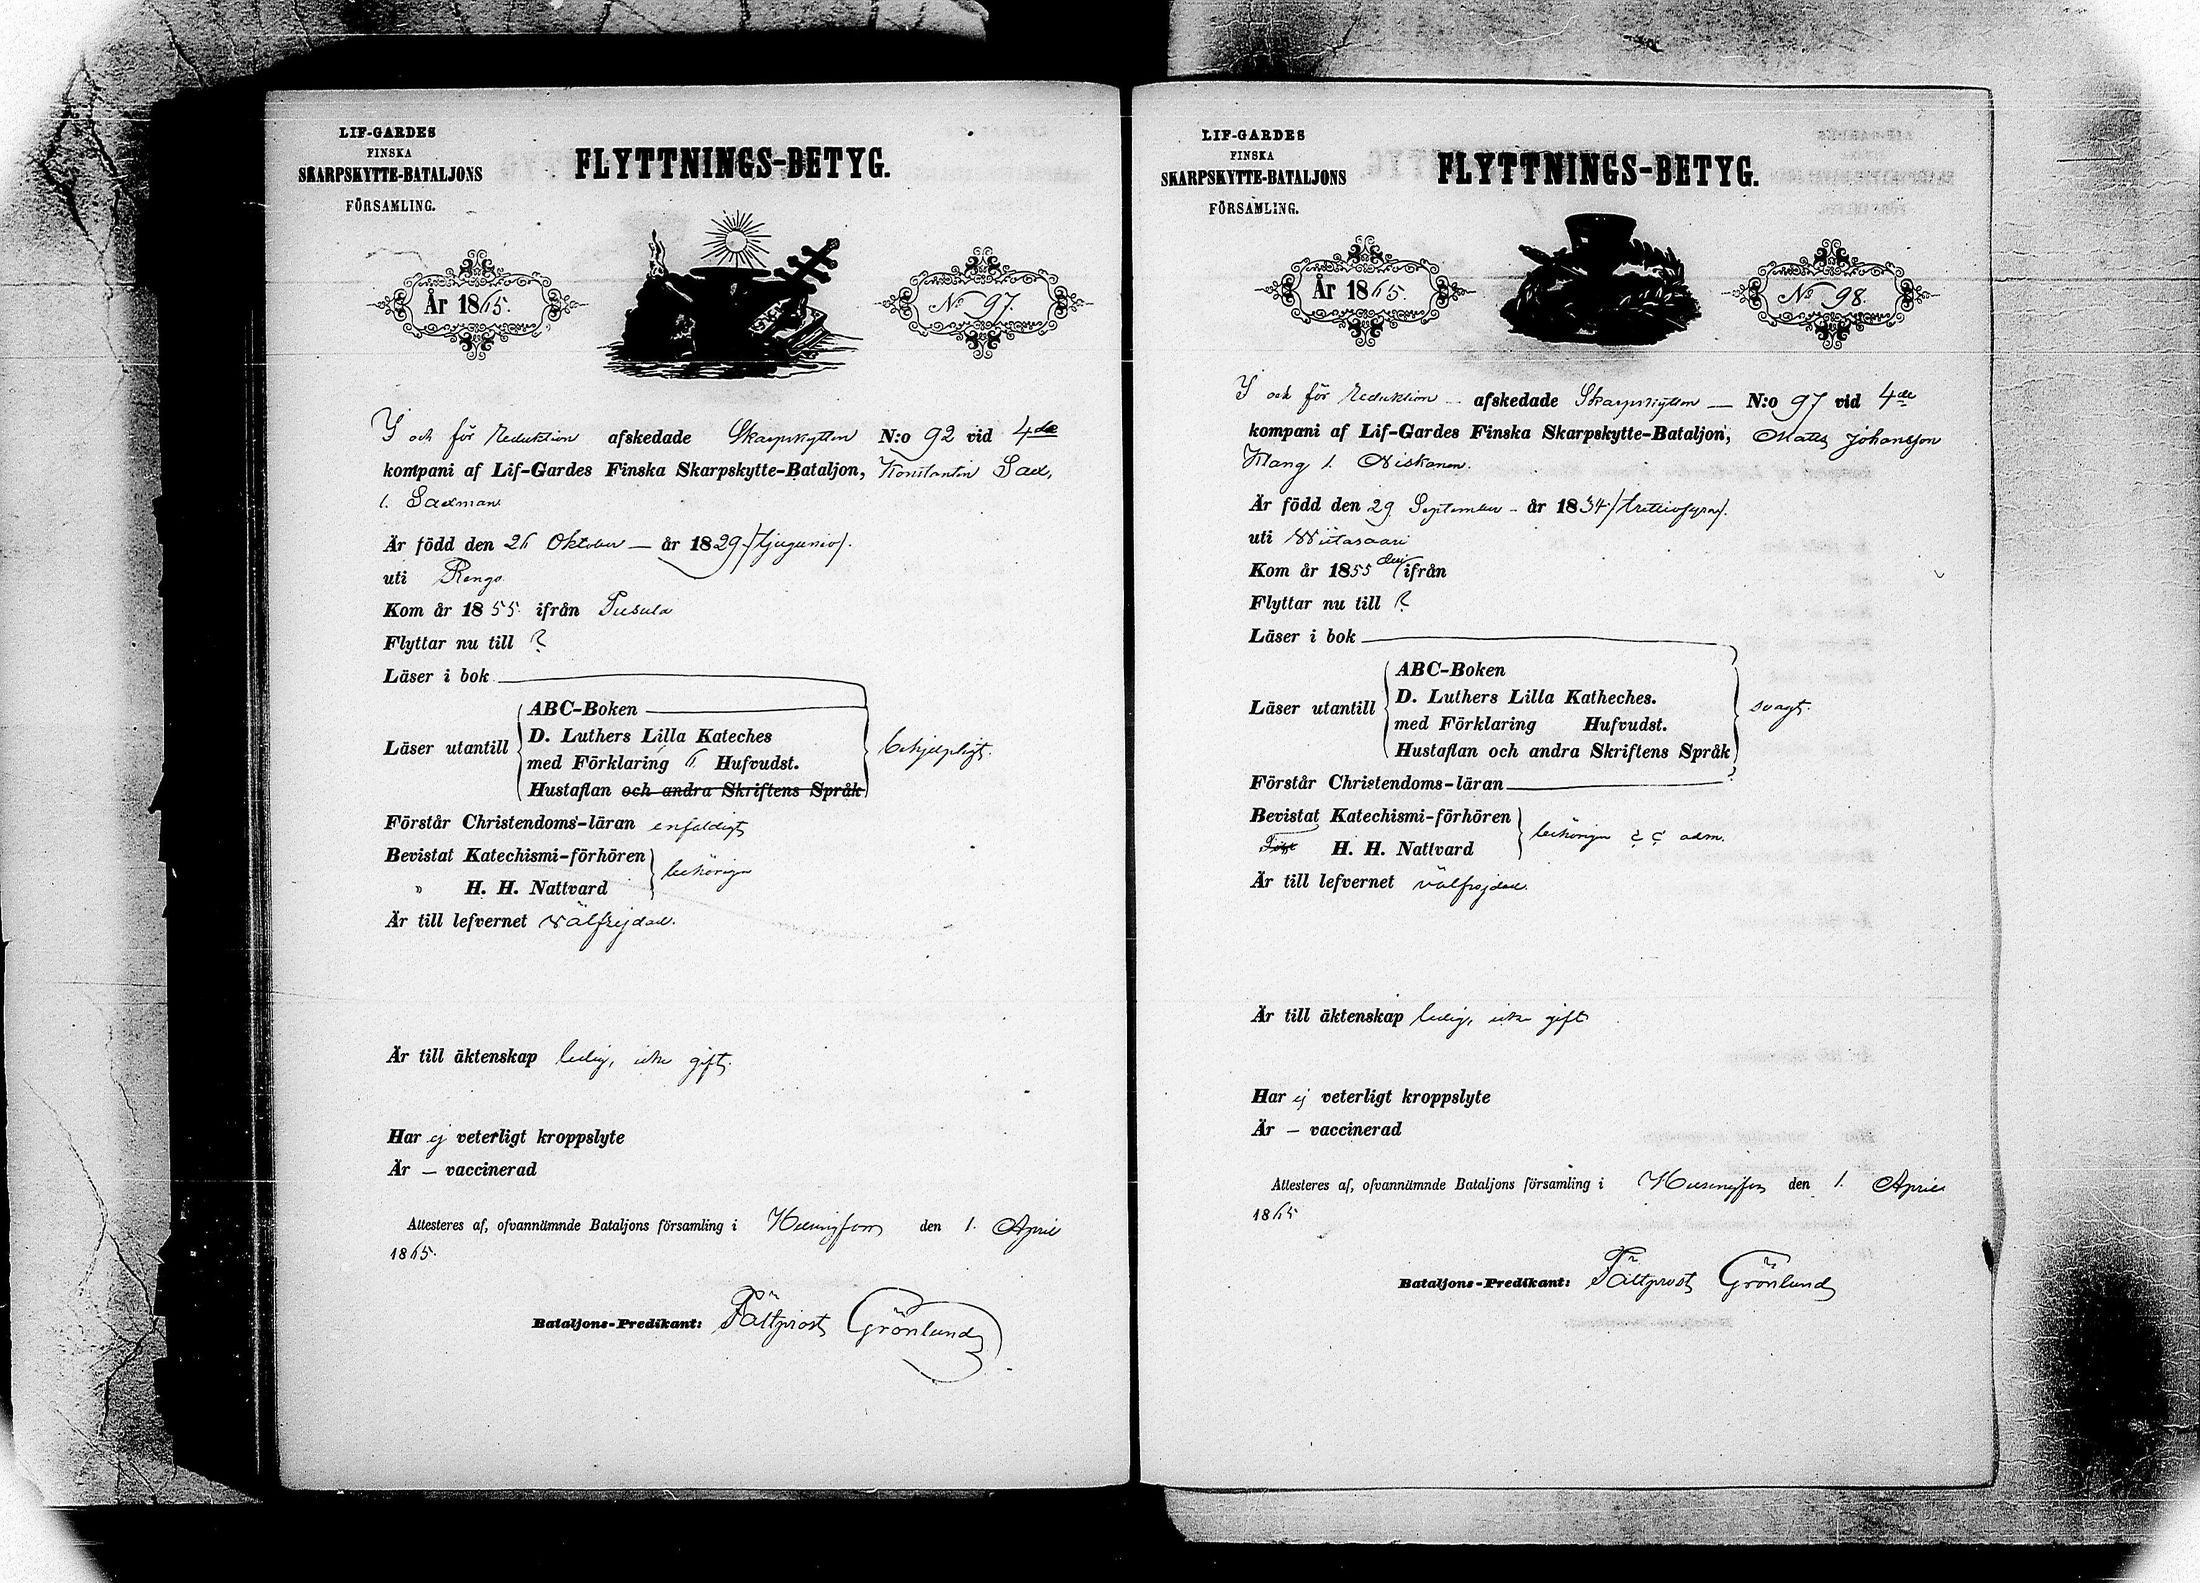 LIF-GARDES
FINSKA
SKARPSKYTTE-BATALJONS
FÖRSAMLING.
FLYTTNINGS-BETYG.
År 1865.
No 97.
I och för Reduktion afskedade Skarpskytten N:o 92 vid 4de
kompani af Lif-Gardes Finska Skarpskytte-Bataljon, Konstantin Sax,
l. Saxman
Är född den 26 Oktober — år 1829 /tjugunio/.
uti Rengo
Kom år 1855 ifrån Tusula
Flyttar nu till ?
Läser i bok
Läser utantill
ABC-Boken
D. Luthers Lilla Kateches
med Förklaring 6 Hufvudst.
Hustaflan och andra Skriftens Språk
behjelpligt.
Förstår Christendoms-läran enfaldigt
Bevistat Katechismi-förhören
» H. H. Nattvard
behörigen
Är till lefvernet välfrejdad.
Är till äktenskap ledig, icke gift.
Har ej veterligt kroppslyte
Är — vaccinerad
Attesteres af, ofvannämnde Bataljons församling i Helsingfors den 1. April
1865.
Bataljons-Predikant: Fältprost Grönlund
LIF-GARDES
FINSKA
SKARPSKYTTE-BATALJONS
FÖRSAMLING.
FLYTTNINGS-BETYG.
År 1865.
No 98.
I och för Reduktion afskedade Skarpskytten — N:o 97 vid 4de
kompani af Lif-Gardes Finska Skarpskytte-Bataljon, Matts Johansson
Klang l. Niskanen.
Är född den 29 September — år 1834 /trettiofyra/.
uti Wiitasaari
Kom år 1855 ifrån
Flyttar nu till ?
Läser i bok
Läser utantill
ABC-Boken
D. Luthers Lilla Katheches.
med Förklaring Hufvudst.
Hustaflan och andra Skriftens Språk
svagt.
Förstår Christendoms-läran
Bevistat Katechismi-förhören
H. H. Nattvard
behörigen adm.
Är till lefvernet välfrejdad.
Är till äktenskap ledig, icke gift
Har ej veterligt kroppslyte
Är — vaccinerad
Attesteres af, ofvannämnde Bataljons församling i Helsingfors den 1. April
1865
Bataljons-Predikant: Fältprost Grönlund